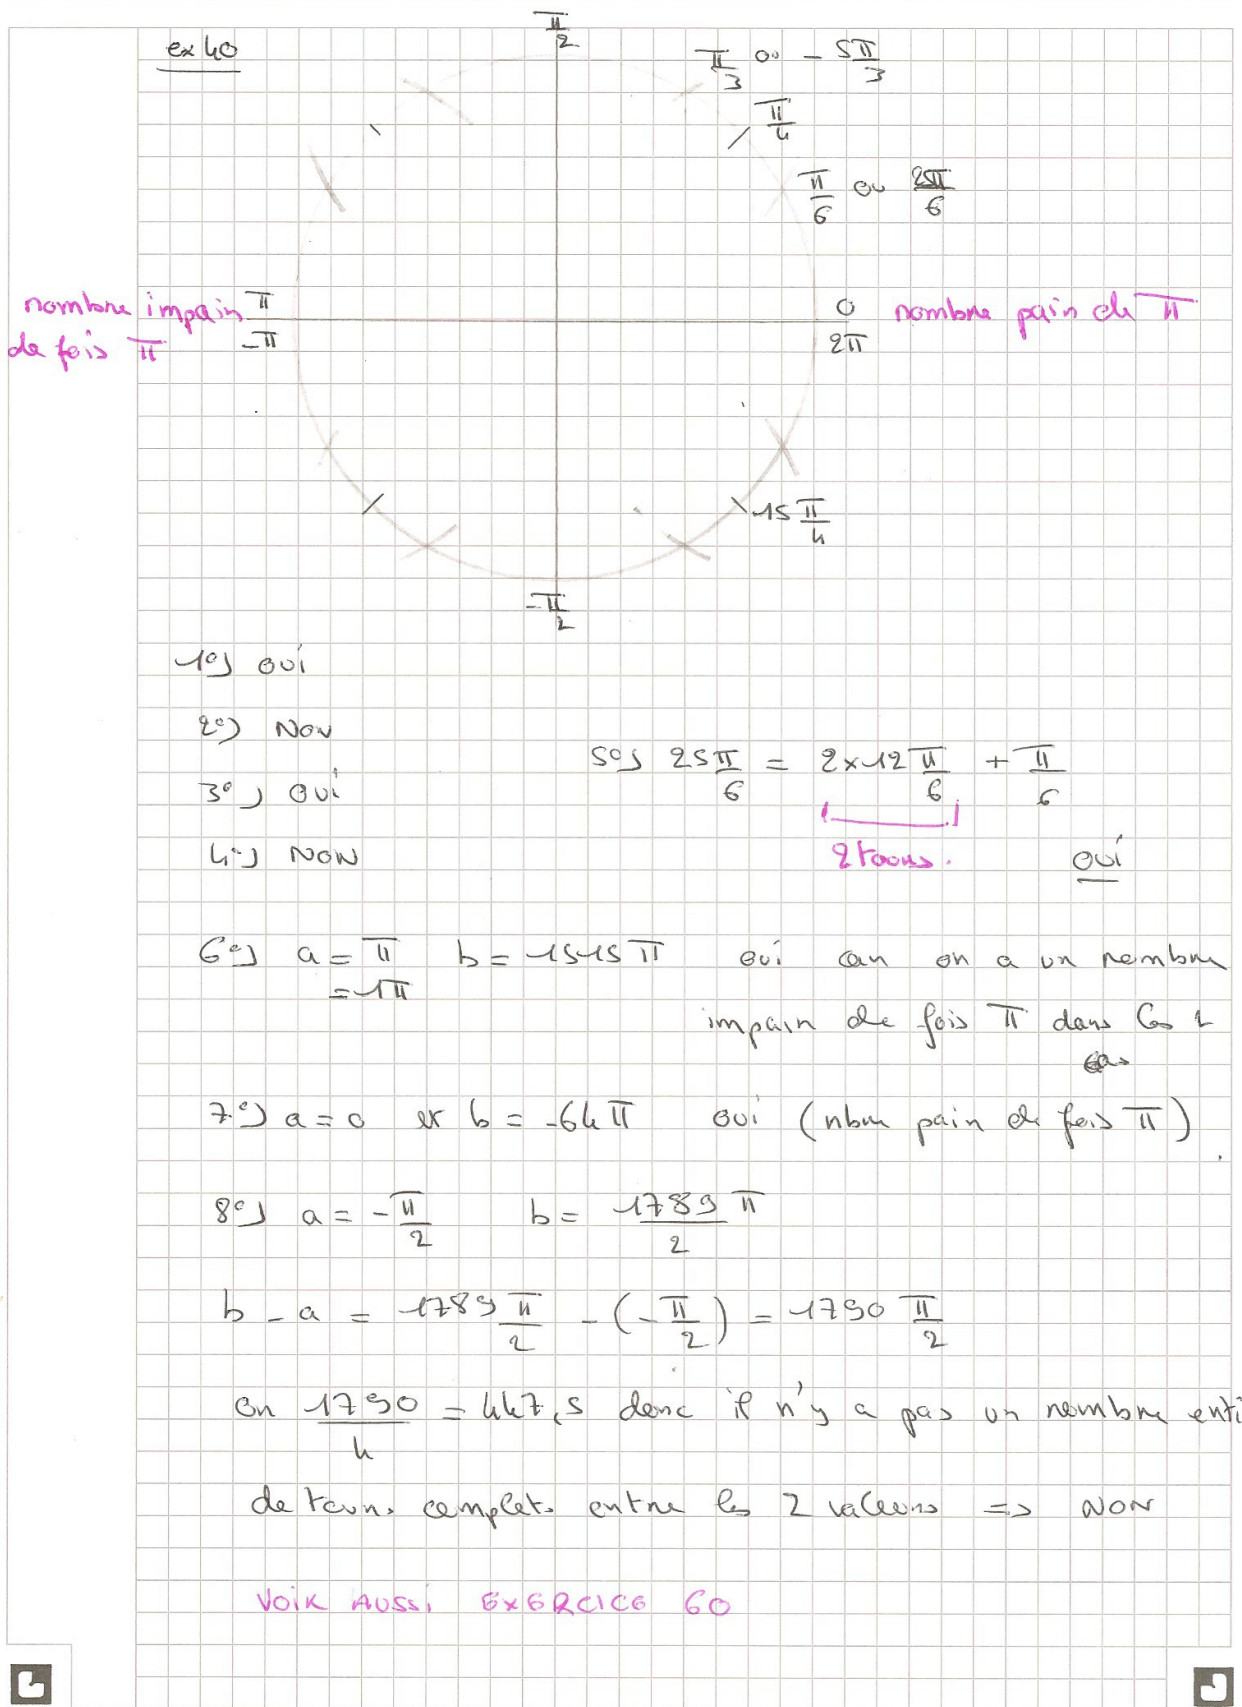 ex 40
π/2
π/3 ou - 5π/3
π/4
π/6 ou 25π/6
nombre impair de fois π
π
-π
0
2π
nombre pair de π
15π/4
-π/2
1°) OUI
2°) NON
3°) OUI
4°) NON
5°) 25π/6 = 2×12π/6 + π/6
2 tours. OUI
6°) a = π b = 1515π oui car on a un nombre
= 1π
impair de fois π dans les 2
cas
7°) a = 0 et b = -64π oui (nbre pair de fois π)
8°) a = -π/2 b = 1789π/2
b - a = 1789π/2 - (-π/2) = 1790π/2
or 1790/4 = 447,5 donc il n'y a pas un nombre enti
de tours complets entre les 2 valeurs => NON
VOIR AUSSI EXERCICE 60